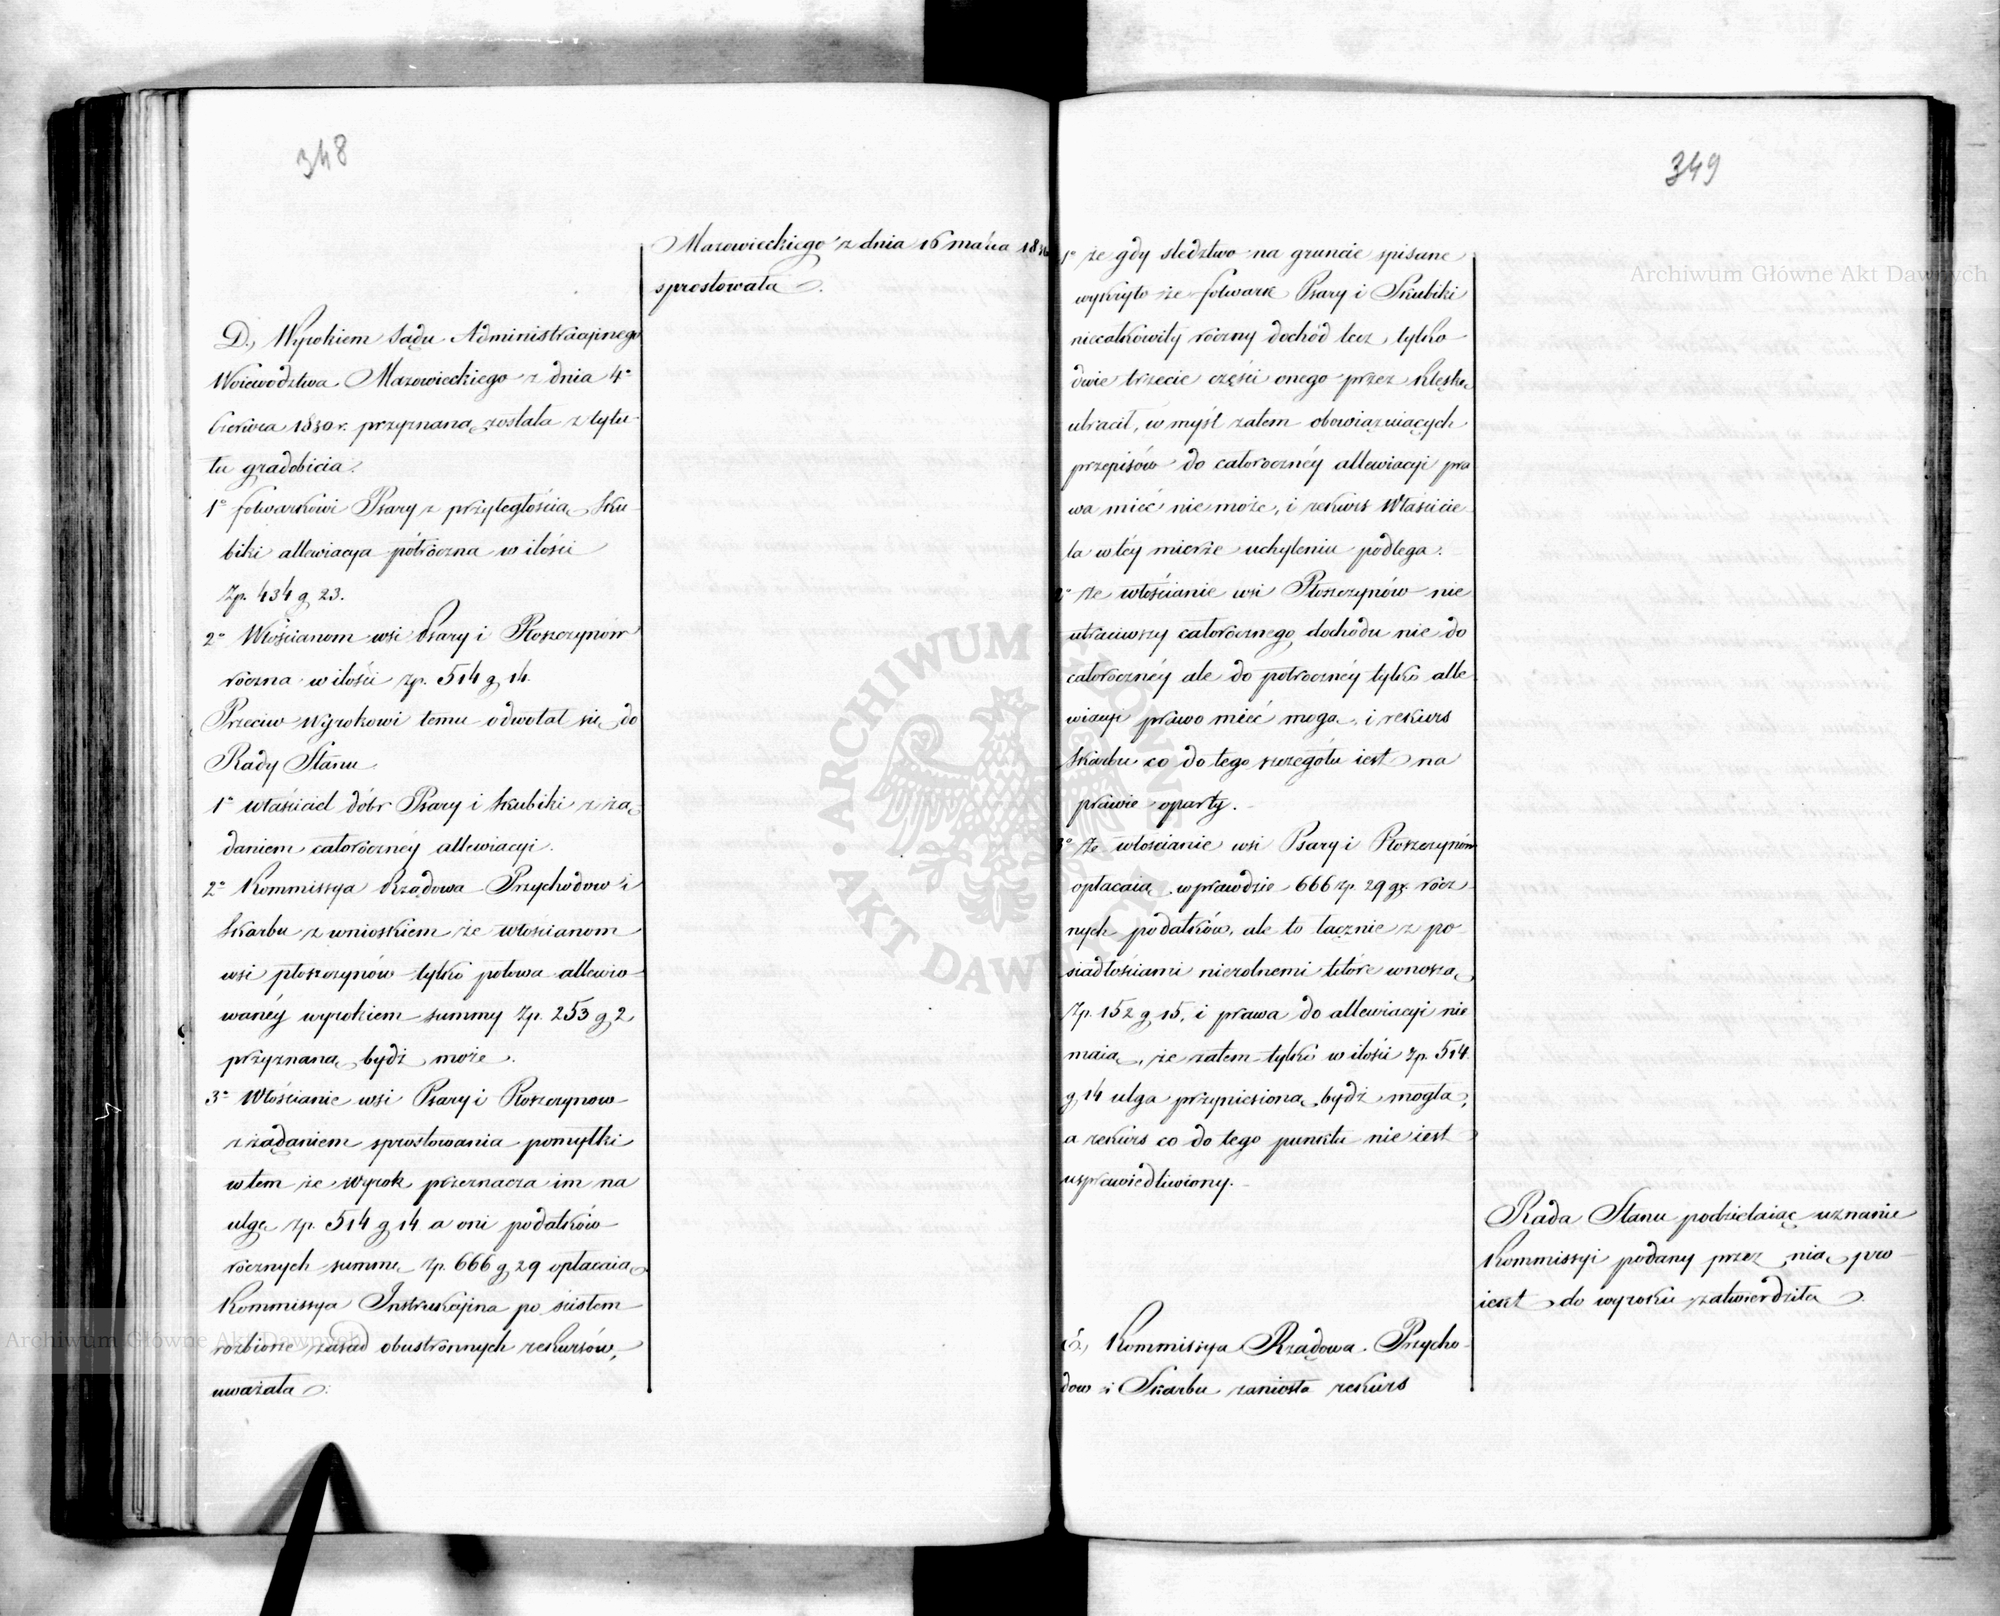 348
Mazowieckiego z dnia 16 marca 1830
sprostowała.
D., Wyrokiem Sądu Administracyinego
Woiewództwa Mazowieckiego z dnia 4o
Czerwca 1830 r. przyznaną została z tytu-
łu gradobicia.
1o folwarkowi Psary z przyległością Sku-
biki allewiacya półroczna w ilości
Zp. 434 g 23.
2o Włościanom wsi Psary i Płoszczynów
roczna w ilości zp. 514 g 14.
Przeciw wyrokowi temu odwołał się do
Rady Stanu
1o właściciel dóbr Psary i Skubiki z żą-
daniem całoroczney allewiacyi.
2o Kommissya Rządowa Przychodow i
Skarbu z wnioskiem że włościanom
wsi płoszczynów tylko połowa allewio-
wanéy wyrokiem summy Zp. 253 g 2
przyznaną bydź może.
3o Włościanie wsi Psary i Płoszczynow
z żądaniem sprostowania pomyłki
w tem że wyrok przeznacza im na
ulgę zp. 514 g 14 a oni podatków
rocznych summę zp. 666 g 29 opłacaią
Kommissya Instrukcyina po ścisłem
rozbiorze zasad obustronnych rekursów,
uważała:
349
1o że gdy sledztwo na gruncie spisane
wykryło że folwark Psary i Skubiki
niecałkowity roczny dochód lecz tylko
dwie trzecie części onego przez klęskę
utracił, w myśl zatem obowiązuiących
przepisów do całorocznéy allewiacyi pra
wa mieć nie może, i rekurs Właścicie
la w téy mierze uchyleniu podlega.
2o że włościanie wsi Płoszczynów nie
utraciwszy całorocznego dochodu nie do
całorocznéy ale do połrocznéy tylko alle
wiacyi prawo mieć mogą, i rekurs
Skarbu co do tego szczegółu iest na
prawie oparty.
3o że włościanie wsi Psary i Płoszczynów
opłacaią wprawdzie 666 zp. 29 gr. rocz
nych podatków, ale to łącznie z po
siadłościami nierolnemi które wnoszą
Zp. 152 g 15, i prawa do allewiacyi nie
maią, że zatem tylko w ilości Zp. 514
g 14 ulga przyniesiona bydź mogła,
a rekurs co do tego punktu nie iest
usprawiedliwiony.
Rada Stanu podzielaiąc uznanie
Kommissyi podany przez nią pro
iekt do wyroku zatwierdziła.
E., Kommissya Rządowa Przycho-
dow i Skarbu zaniosła rekurs
Archiwum Główne Akt Dawnych
ARCHIWUM GŁÓWNE AKT DAWNYCH
Archiwum Główne Akt Dawnych